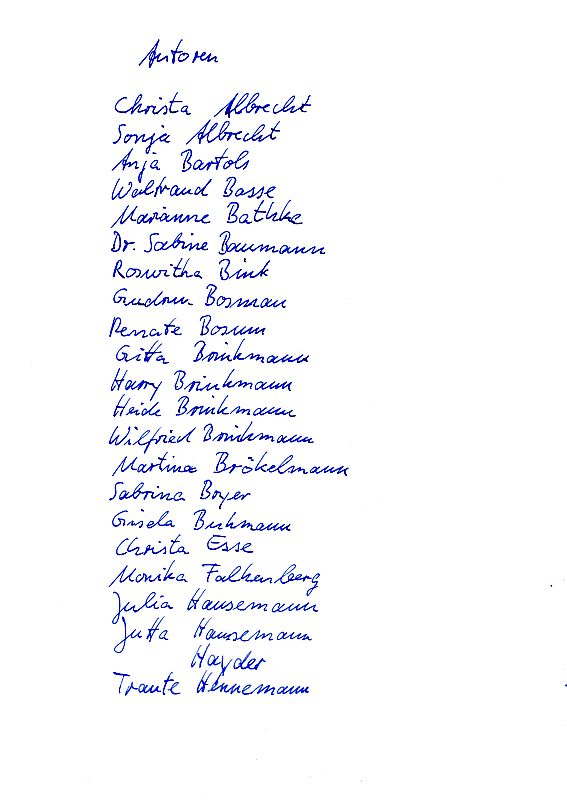 Autoren
Christa Albrecht
Sonja Albrecht
Anja Bartols
Waltraud Basse
Marianne Bathke
Dr. Sabine Baumann
Roswitha Bink
Gudrun Bosman
Renate Bosum
Gitta Brinkmann
Harry Brinkmann
Heide Brinkmann
Wilfried Brinkmann
Martina Brökelmann
Sabrina Boyer
Gisela
Christa Esse
Monika Falkenberg
Julia Hausemann
Jutta Hausemann
Hayder
Traute Hennemann